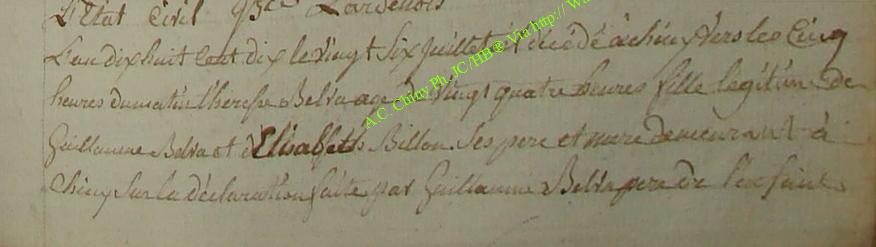 L'Etat Civil
L'an dix huit cent dix le vingt six juillet est décédé à chiny vers les Cinq
heures du matin therese Belva age de vingt quatre heures fille legitime de
Guillaume Belva et d'Elisabeth Billon. Ses pere et mere demeurant à
Chiny Sur la déclaration faite par Guillaume Belva pere de l'enfant
A.C. Chiny Ph. JC/HB® Via http:// W